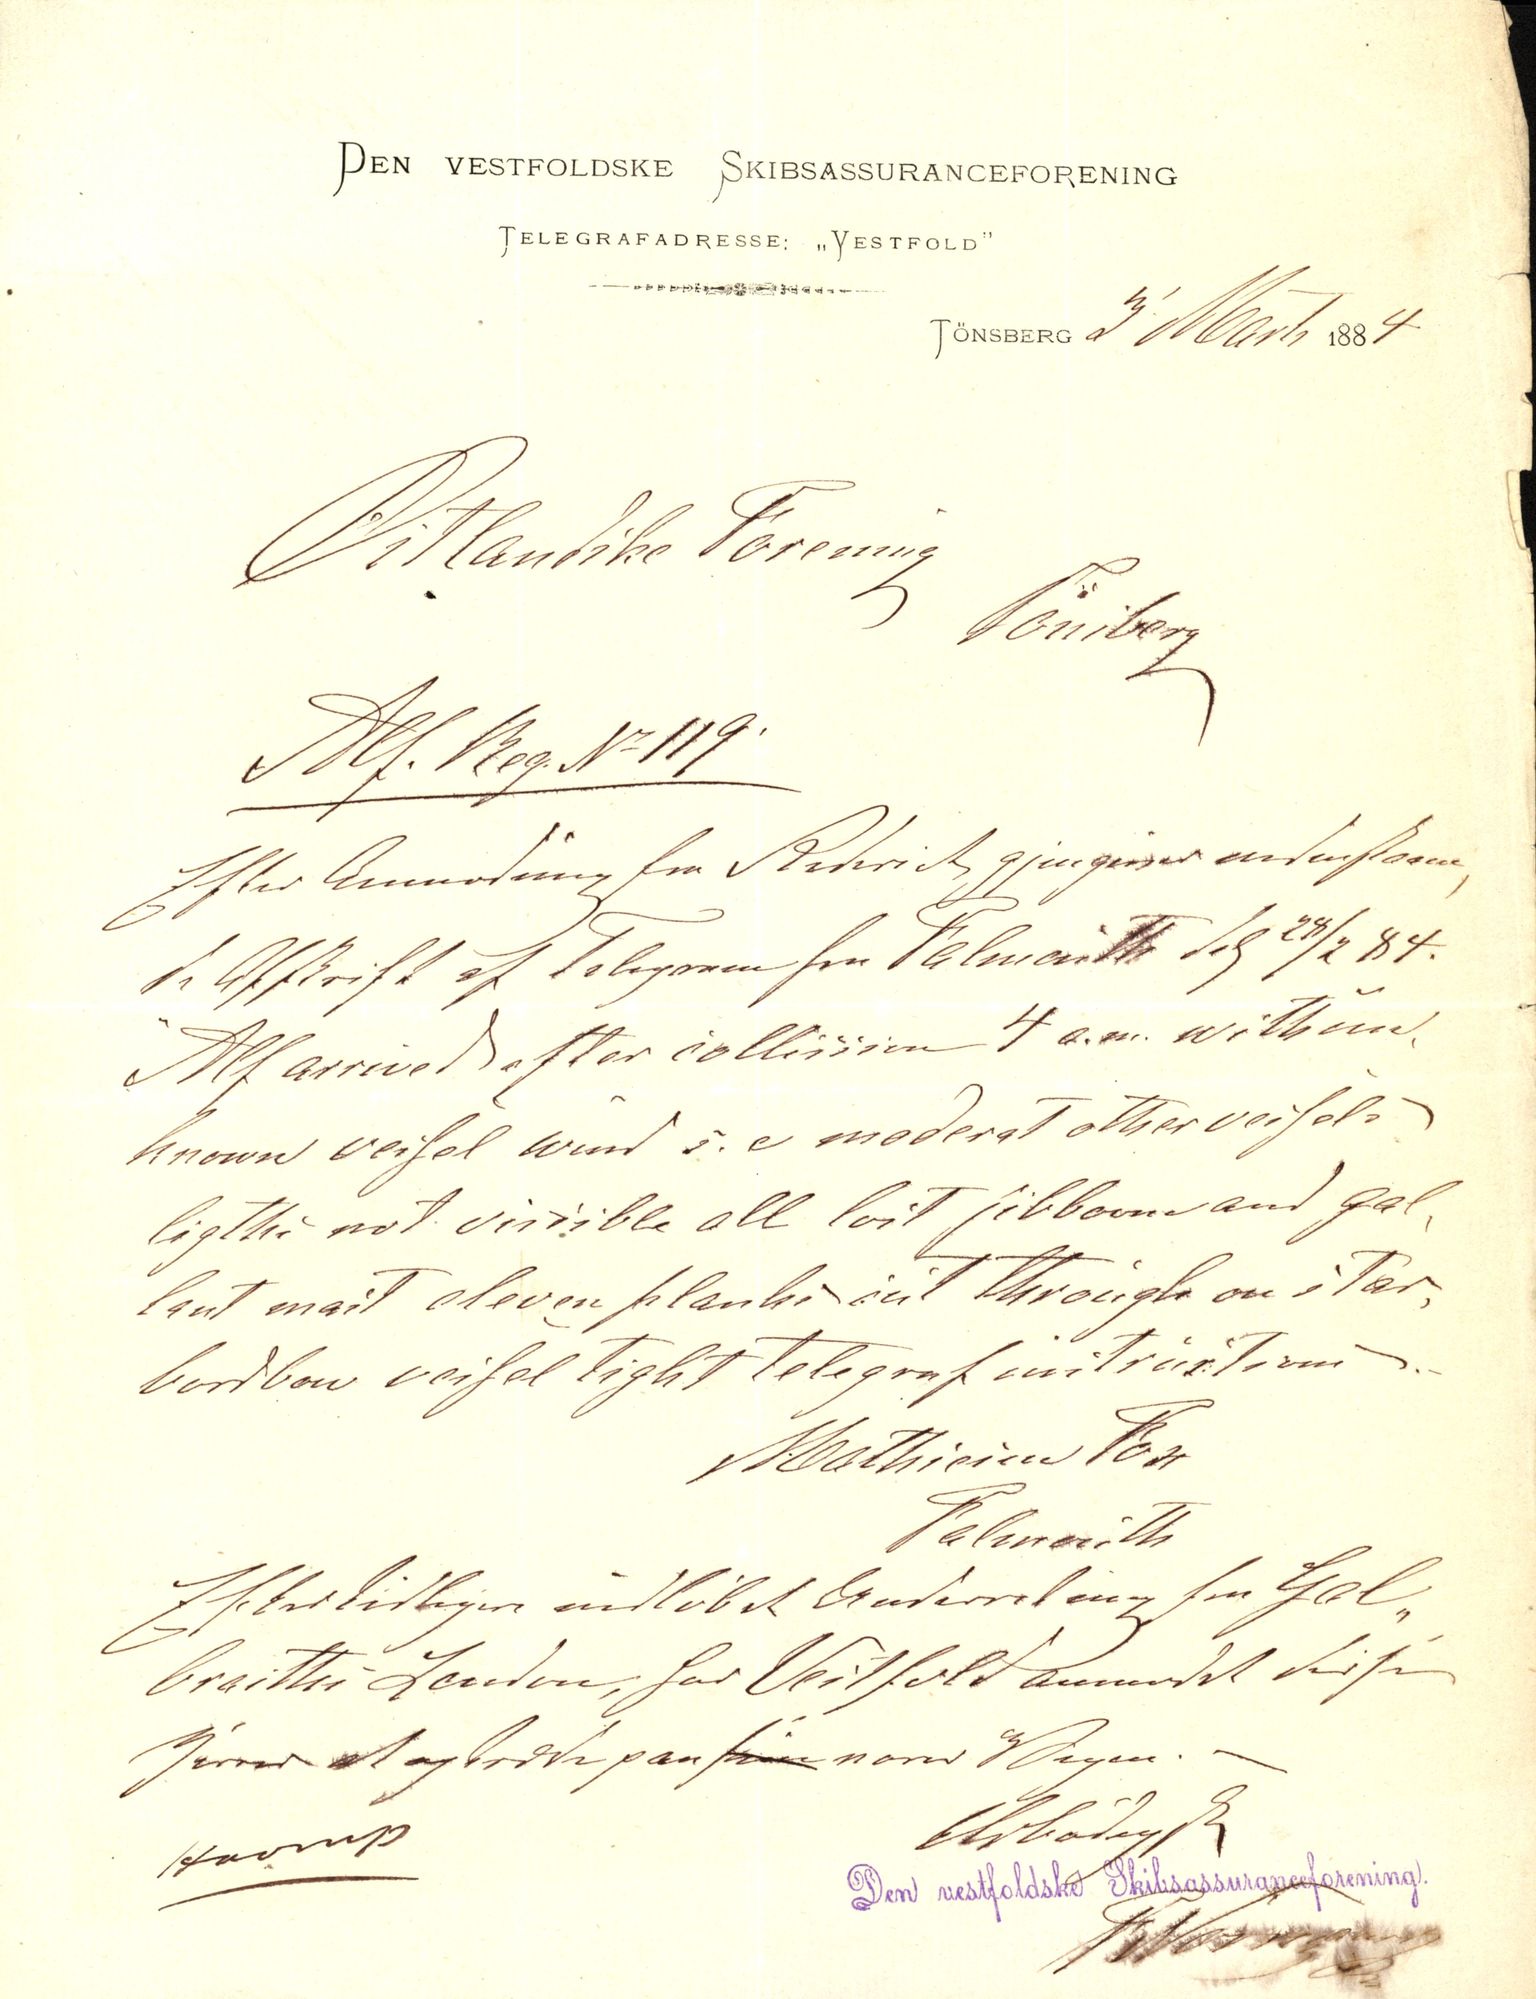 DEN VESTFOLDSKE SKIBSASSURANCEFORENING
TELEGRAFADRESSE: „VESTFOLD”
TÖNSBERG 3 Marts 1884
Østlandske Forening
Tönsberg
Alf. Reg. No 119.
Efter Anmodning fra Rederiet gjengives nedenståen,
de Afskrift af Telegram fra Falmouth dg 28/2 84.
"Alf arrived after collission 4 a.m. with un,
known vessel wind s.e moderat other vessels
ligths not vissible all lost jibboom and gal,
lant mast eleven planks cut through on star,
bordbow vessel tight telegraf instructions.-
Fox
Falmouth
Efter tidligere indløbet Underretning fra Gal„
braiths London, har Vestfold anmodet disse
Herrer at optræde paa sine vores Vegne. -
Ærbødigst
Den vestfoldske Skibsassuranceforening.